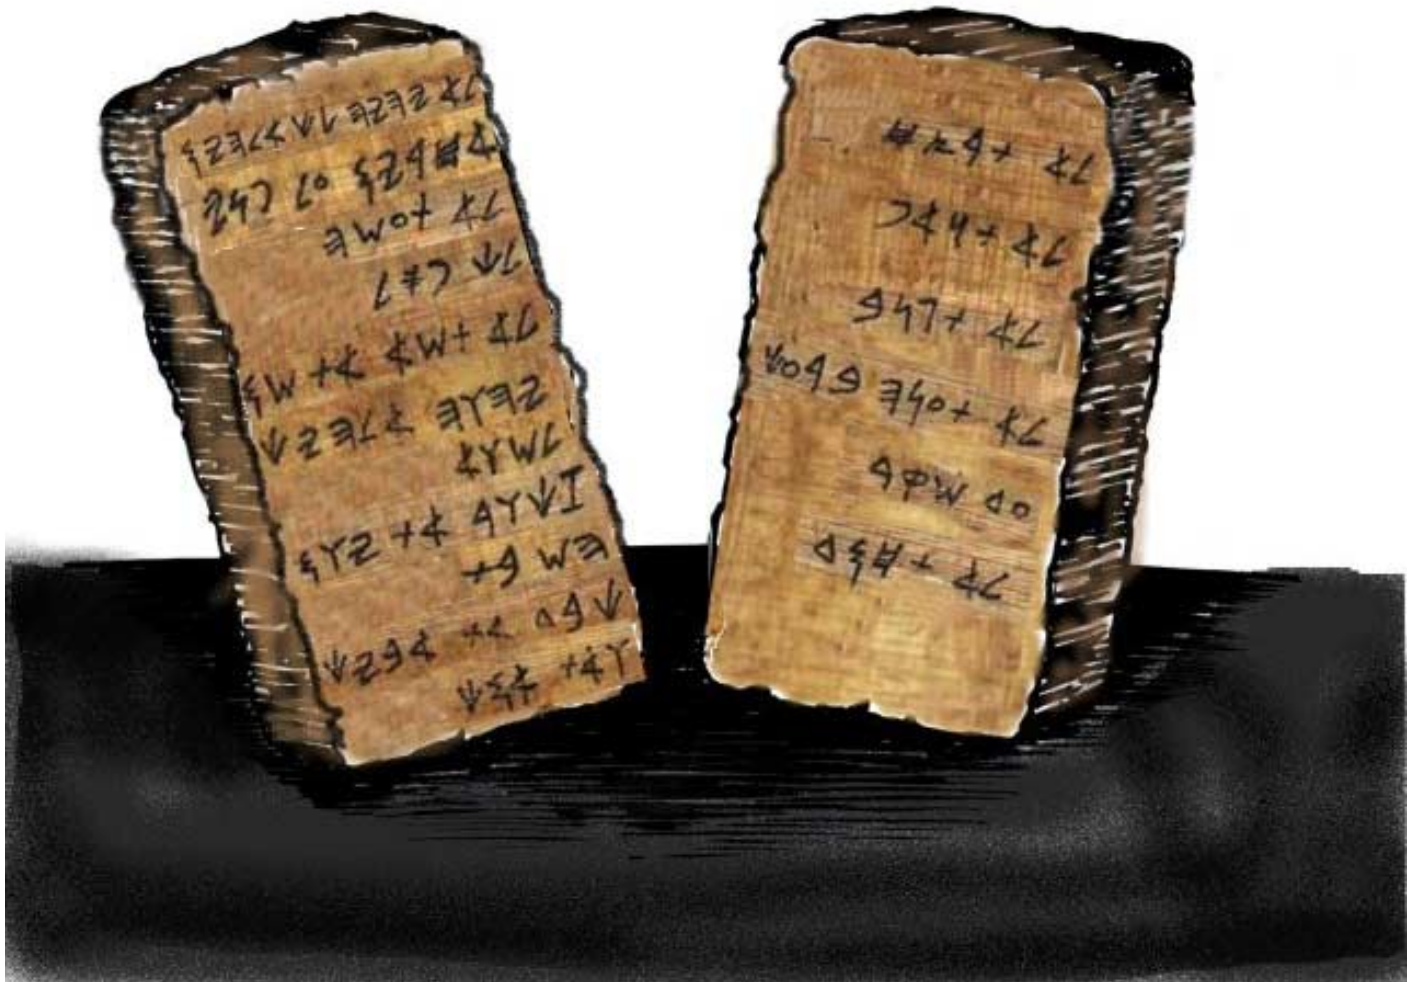 𐤋𐤀 𐤉𐤄𐤉𐤄 𐤋𐤊 𐤀𐤋𐤄𐤉𐤌
𐤀𐤇𐤓𐤉𐤌 𐤏𐤋 𐤐𐤍𐤉
𐤋𐤀 𐤕𐤏𐤔𐤄
𐤋𐤊 𐤐𐤎𐤋
𐤋𐤀 𐤕𐤔𐤀 𐤀𐤕 𐤔𐤌
𐤉𐤄𐤅𐤄 𐤀𐤋𐤄𐤉𐤊
𐤋𐤔𐤅𐤀
𐤆𐤊𐤅𐤓 𐤀𐤕 𐤉𐤅𐤌
𐤄𐤔𐤁𐤕
𐤊𐤁𐤃 𐤀𐤕 𐤀𐤁𐤉𐤊
𐤅𐤀𐤕 𐤀𐤌𐤊
𐤋𐤀 𐤕𐤓𐤑𐤇
𐤋𐤀 𐤕𐤍𐤀𐤐
𐤋𐤀 𐤕𐤂𐤍𐤁
𐤋𐤀 𐤕𐤏𐤍𐤄 𐤁𐤓𐤏𐤊
𐤏𐤃 𐤔𐤒𐤓
𐤋𐤀 𐤕𐤇𐤌𐤃